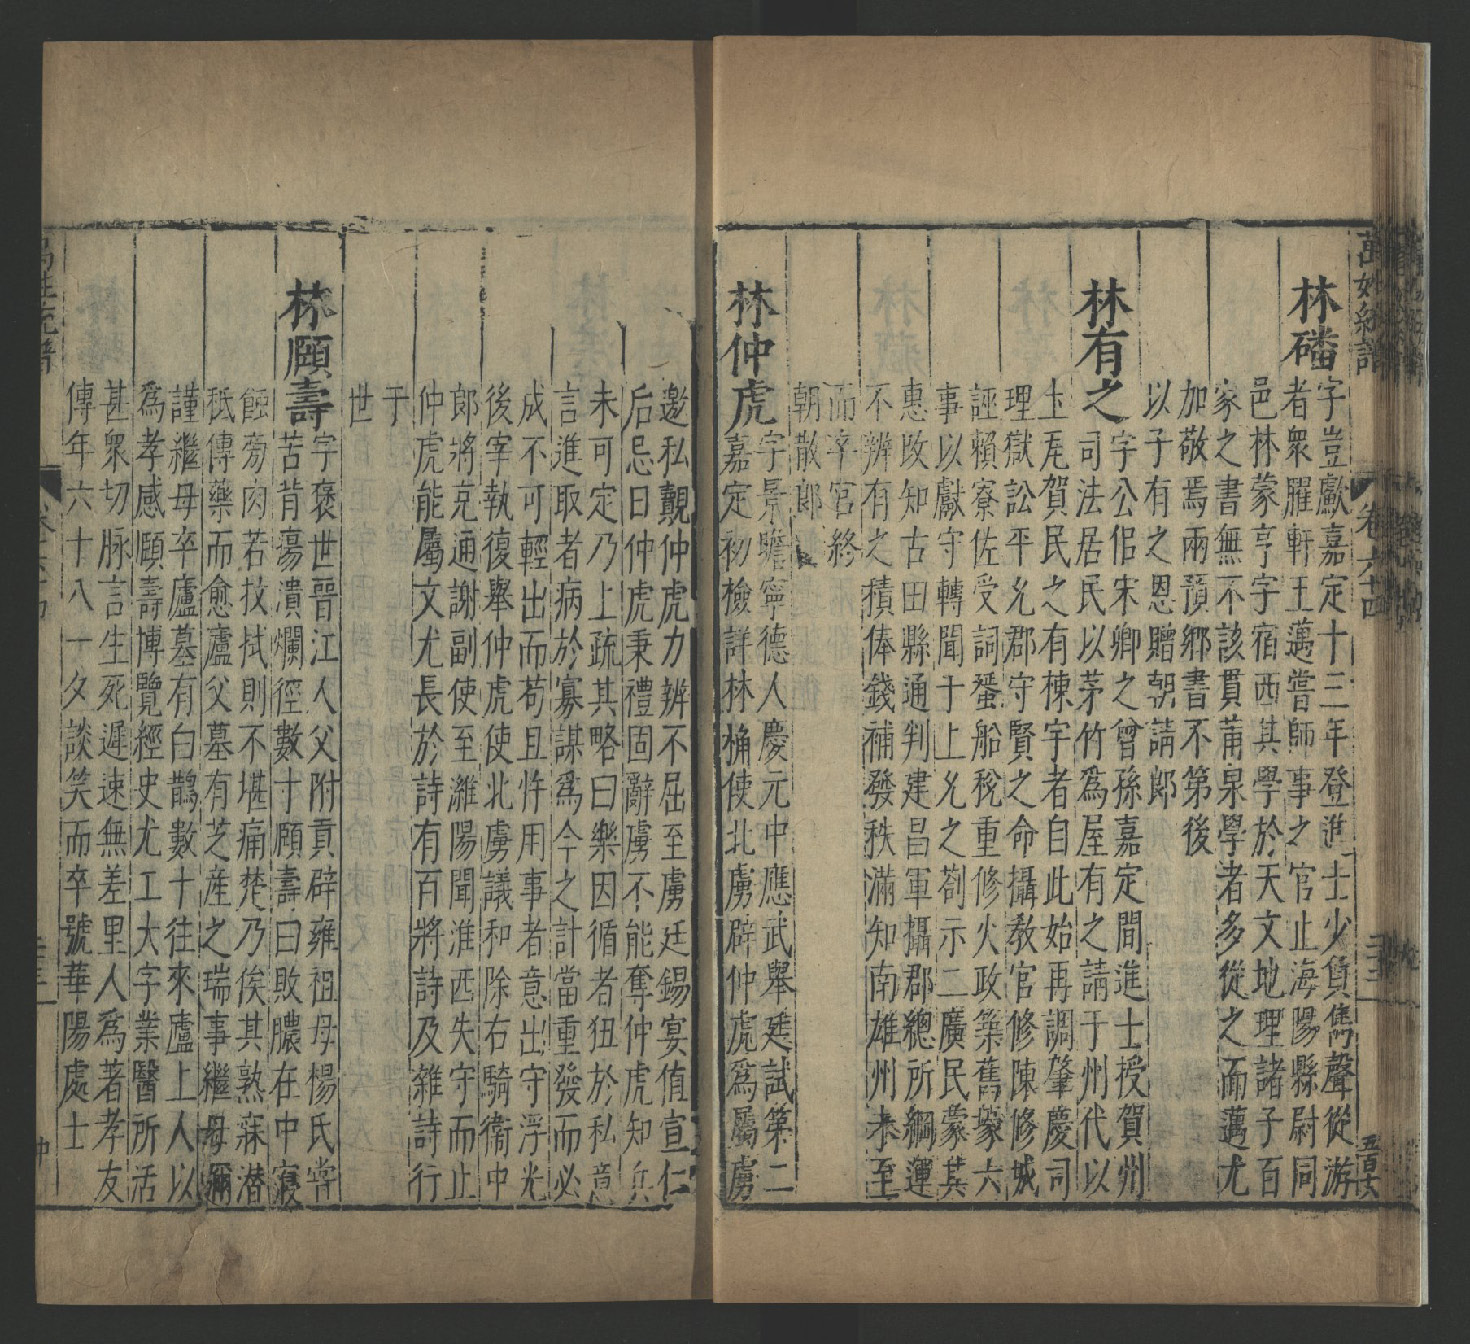 萬姓統譜 卷六十四 五百六
林磻
字豈獻嘉定十三年登進士少負雋聲從游
者衆臞軒王邁嘗師事之官止海陽縣尉同
邑林蒙亨字字宿西其學於天文地理諸子百
家之書無不該貫莆泉學者多從之而邁尤
加敬焉兩預鄉書不第後
以子有之恩贈朝請郎
林有之
字公侶宋卿之曾孫嘉定間進士授賀州
司法居民以茅竹爲屋有之請于州代以
土瓦賀民之有棟宇者自此始再調肇慶司
理獄訟平允郡守賢之命攝教官修陳修城
誣賴寮佐受詞蜑船稅重修火政築舊壕六
事以獻守轉聞于上允之劄示二廣民蒙其
惠改知古田縣通判建昌軍攝郡總所綱運
不辨有之積俸錢補發秩滿知南雄州未至
而卒官終
朝散郎
林仲虎
字景瞻寧德人慶元中應武舉廷試第二
嘉定初檢詳林桷使北虜辟仲虎爲屬虜
邀私覿仲虎力辨不屈至虜廷錫宴值宣仁
后忌日仲虎秉禮固辭虜不能奪仲虎知兵
未可定乃上疏其略曰樂因循者狃於私意
言進取者病於寡謀爲今之計當重發而必
成不可輕出而苟且忤用事者意出守浮光
後宰執復舉仲虎使北虜議和除右騎衞中
郎將克通謝副使至濰陽聞淮西失守而止
仲虎能屬文尤長於詩有百將詩及雜詩行
于
世
林頤壽
字褒世晉江人父附貢辟雍祖母楊氏嘗
苦背瘍潰爛徑數寸頤壽曰敗膿在中寢
蝕旁肉若抆拭則不堪痛楚乃俟其熟寐潛
舐傅藥而愈廬父墓有芝產之瑞事繼母彌
謹繼母卒廬墓有白鵲數十往來廬上人以
爲孝感頤壽博覽經史尤工大字業醫所活
甚衆切脉言生死遲速無差里人爲著孝友
傳年六十八一夕談笑而卒號華陽處士